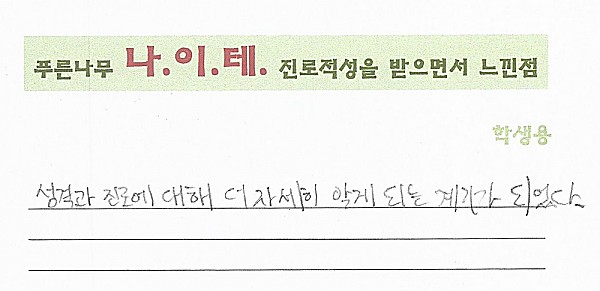 푸른나무 나.이.테. 진로적성을 받으면서 느낀점
학생용
성격과 진로에 대해 더 자세히 알게 되는 계기가 되었다.